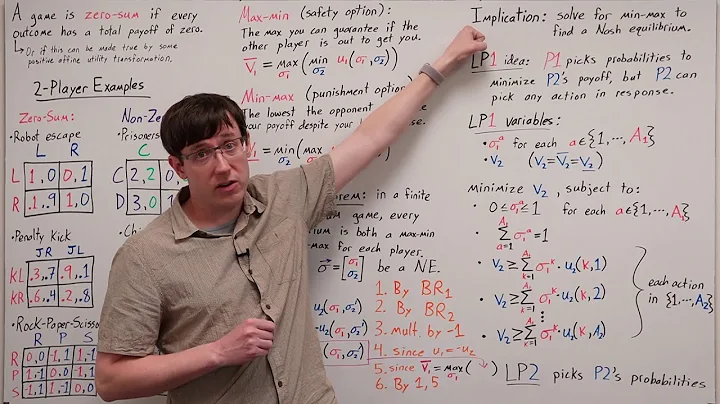 A game is zero-sum if every
outcome has a total payoff of zero.
Or if this can be made true by some
positive affine utility transformation.
2-Player Examples
Zero-Sum:
• Robot escape
L R
L 1,0 0,1
R .1,.9 1,0
• Penalty Kick
JR JL
KL .3,.7 .9,.1
KR .6,.4 .2,.8
• Rock-Paper-Scisso
R P S
R 0,0 -1,1 1,-1
P 1,-1 0,0 -1,1
S -1,1 1,-1 0,0
Non-Ze
• Prisoners
C
C 2,2 0,
D 3,0
• Ch
Max-min (safety option):
The max you can guarantee if the
other player is out to get you.
V̅₁ = max σ₁ (min σ₂ u₁(σ₁,σ₂))
Min-max (punishment option
The lowest the opponent
our payoff despite your b
= min σ₂ (max
orem: in a finite
m game, every
rium is both a max-min
-max for each player.
σ⃗ = [σ₁ σ₂] be a NE.
u₂(σ₁,σ₂)
-u₂(σ₁,σ₂)
(σ₁,σ₂)
1. By BR₁
2. By BR₂
3. mult. by -1
4. since u₁=-u₂
5. since V̅₁ = max σ₁ ( )
6. By 1,5
Implication: solve for min-max to
find a Nash equilibrium.
LP1 idea: P1 picks probabilities to
minimize P2's payoff, but P2 can
pick any action in response.
LP1 variables:
• σ₁ᵃ for each a∈{1,…,A₁}
• V₂ (V̲₂=V̅₂=V₂)
Minimize V₂, subject to:
• 0≤σ₁ᵃ≤1 for each a∈{1,…,A₁}
• Σ σ₁ᵃ=1
• V₂ ≥ Σ σ₁ᵏ·u₂(k,1)
• V₂ ≥ Σ σ₁ᵏ·u₂(k,2)
⋮
• V₂ ≥ Σ σ₁ᵏ·u₂(k,A₂)
each action
in {1,…,A₂}
LP2 picks P2's probabilities